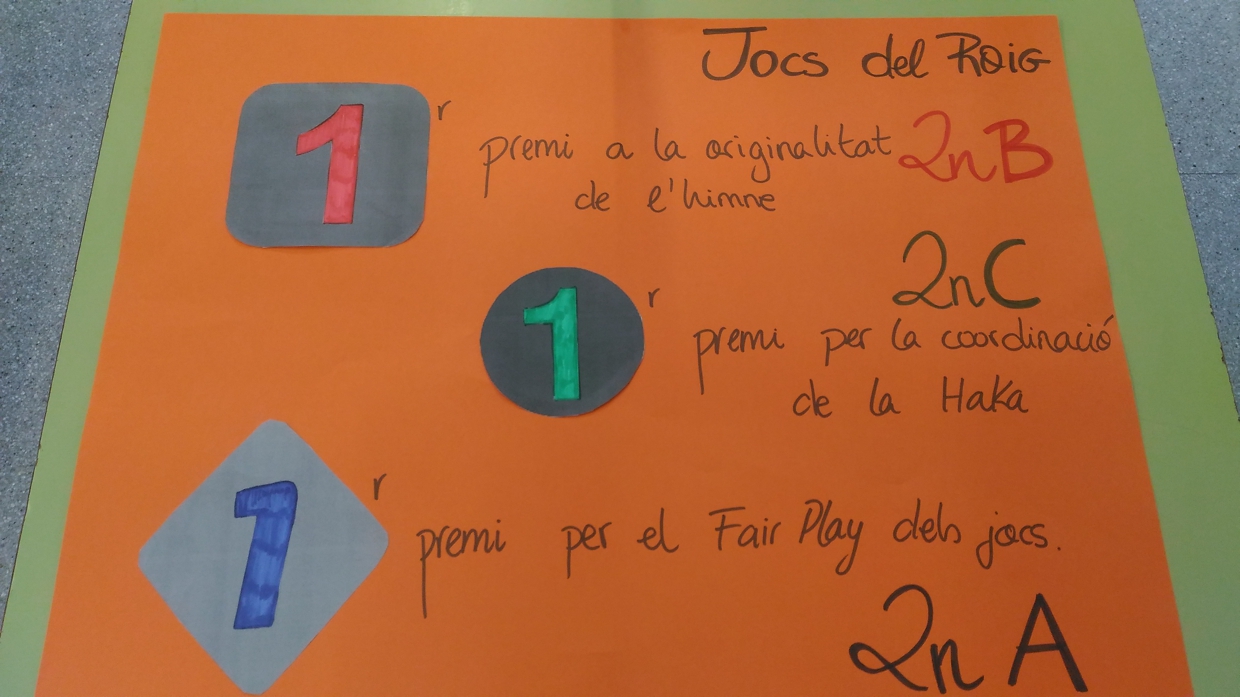 Jocs del Roig
1r premi a la originalitat 2nB
de l'himne
2nC
1r premi per la coordinació
de la Haka
1r premi per el Fair Play dels jocs.
2n A